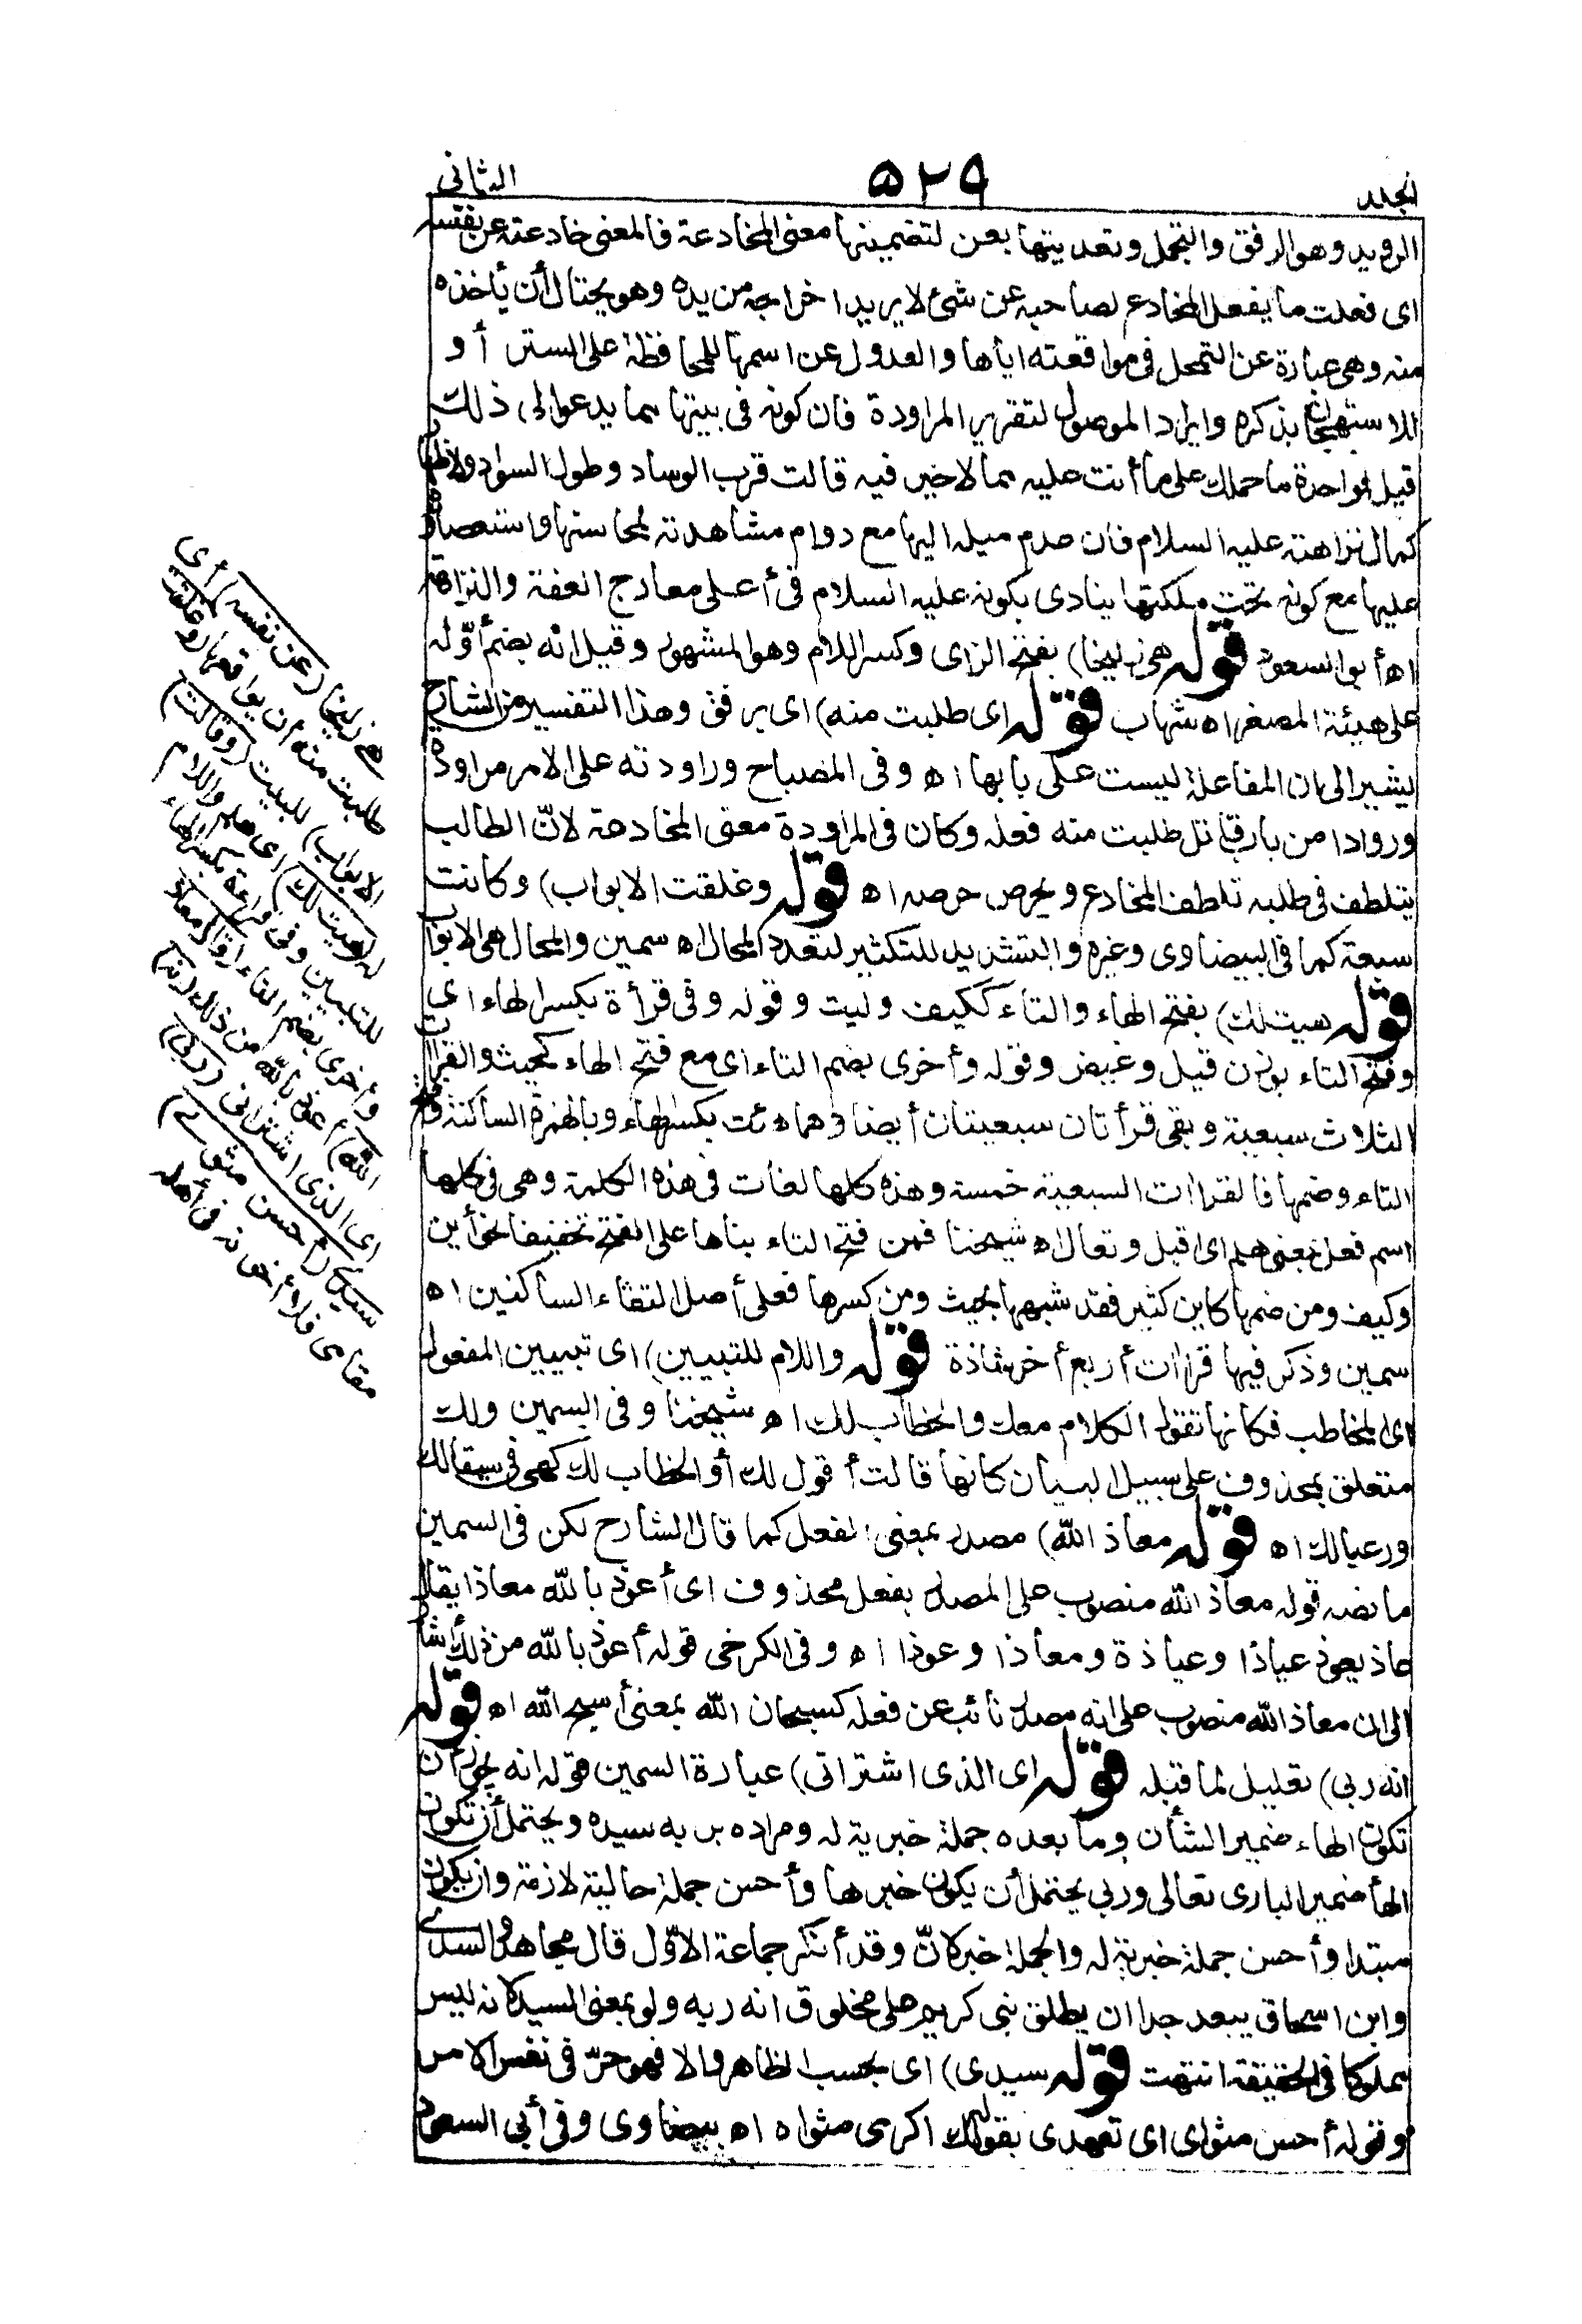 المجلد
٥٢٩
الثانى
الرويد وهو الرفق والتحمل وتعديتها بعن لتضمينها معنى المخادعة فالمعنى خادعته عن نفسه
اى فعلت ما يفعل المخادع لصاحبه عن شئ لا يريد اخراجه من يده وهو يحتال أن يأخذه
منه وهى عبارة عن التمحل فى مواقعته اياها والعدول عن اسمها للمحافظة على الستر أو
للاستهجان بذكره وايراد الموصول لتقرير المراودة فان كونه فى بيتها مما يدعو الى ذلك
قيل لواحدة ما حملك على ما أنت عليه مما لا خير فيه قالت قرب الوساد وطول السواد ولاظهار
كمال نزاهته عليه السلام فان عدم ميله اليها مع دوام مشاهدته لمحاسنها واستعصاؤه
عليها مع كونه تحت ملكتها ينادى بكونه عليه السلام فى أعلى معارج العفة والنزاهة
اه أبو السعود قوله هى زليخا) بفتح الزاى وكسر اللام وهو المشهور وقيل انه بضم أوّله
على هيئة المصغر اه شهاب قوله اى طلبت منه) اى برفق وهذا التفسير من الشارح
يشير الى ان المفاعلة ليست على بابها اه وفى المصباح وراودته على الامر مراودة
وروادا من باب قاتل طلبت منه فعله وكان فى المراودة معنى المخادعة لانّ الطالب
يتلطف فى طلبه تلطف المخادع ويحرص حرصه اه قوله وغلقت الابواب) وكانت
سبعة كما فى البيضاوى وغيره والتشديد للتكثير لتعدد المحال اه سمين والمحال هى الابواب
قوله هيت لك) بفتح الهاء والتاء ككيف وليت وقوله وفى قرأة بكسر الهاء اى
وفتح التاء بوزن قيل وغيض وقوله وأخرى بضم التاء اى مع فتح الهاء كحيث والقراآت
الثلاث سبعية وبقى قرأتان سبعيتان أيضا وهما هئت بكسر الهاء وبالهمزة الساكنة وفتح
التاء وضمها فالقراات السبعية خمسة وهذه كلها لغات فى هذه الكلمة وهى فى كلها
اسم فعل بمعنى هلم اى اقبل وتعال اه شيخنا فمن فتح التاء بناها على الفتح تخفيفا نحو أين
وكيف ومن ضمها كابن كثير فقد شبهها بحيث ومن كسرها فعلى أصل التقاء الساكنين اه
سمين وذكر فيها قراات أربع أخر شاذة قوله واللام للتبيين) اى تبيين المفعول
اى المخاطب فكأنها تقول الكلام معك والخطاب لك اه شيخنا وفى السمين ولك
متعلق بمحذوف على سبيل البيان كانها قالت أقول لك أو الخطاب لك كهى فى سقيا لك
ورعيا لك اه قوله معاذ الله) مصدر بمعنى الفعل كما قال الشارح لكن فى السمين
ما نصه قوله معاذ الله منصوب على المصدر بفعل محذوف اى أعوذ بالله معاذا يقال
عاذ يعوذ عياذا وعياذة ومعاذا وعوذا اه وفى الكرخى قوله أعوذ بالله من ذلك أشار
الى ان معاذ الله منصوب على انه مصدر نائب عن فعله كسبحان الله بمعنى أسبح الله اه قوله
انه ربى) تعليل لما قبله قوله اى الذى اشترانى) عبارة السمين قوله انه يجوز أن
تكون الهاء ضمير الشأن وما بعده جملة خبرية له ومراده بربه سيده ويحتمل أن تكون
الهأ ضمير البارى تعالى وربى يحتمل أن يكون خبرها وأحسن جملة حالية لازمة وان يكون
مبتدا وأحسن جملة خبرية له والجملة خبر لانّ وقد أنكر جماعة الاوّل قال مجاهد والسدى
وابن اسحاق يبعد جدا ان يطلق نبى كريم على مخلوق انه ربه ولو بمعنى السيد لانه ليس
مملوكا فى الحقيقة انتهت قوله سيدى) اى بحسب الظاهر والا فهو حرّ فى نفس الامر
وقوله أحسن مثواى اى تعهدى بقوله لك اكرمى مثواه اه بيضاوى وفى أبى السعود
هى زليخا (عن نفسه) أى
طلبت منه أن يواقعها (وغلقت
الابواب) للبيت (وقالت)
له (هيت لك) اى هلم واللام
للتبيين وفى قراءة بكسر الهاء
وأخرى بضم التاء (قال معاذ
الله) أعوذ بالله من ذلك (انه)
اى الذى اشترانى (ربى)
سيدى (أحسن مثواى)
مقامى فلا أخونه فى أهله